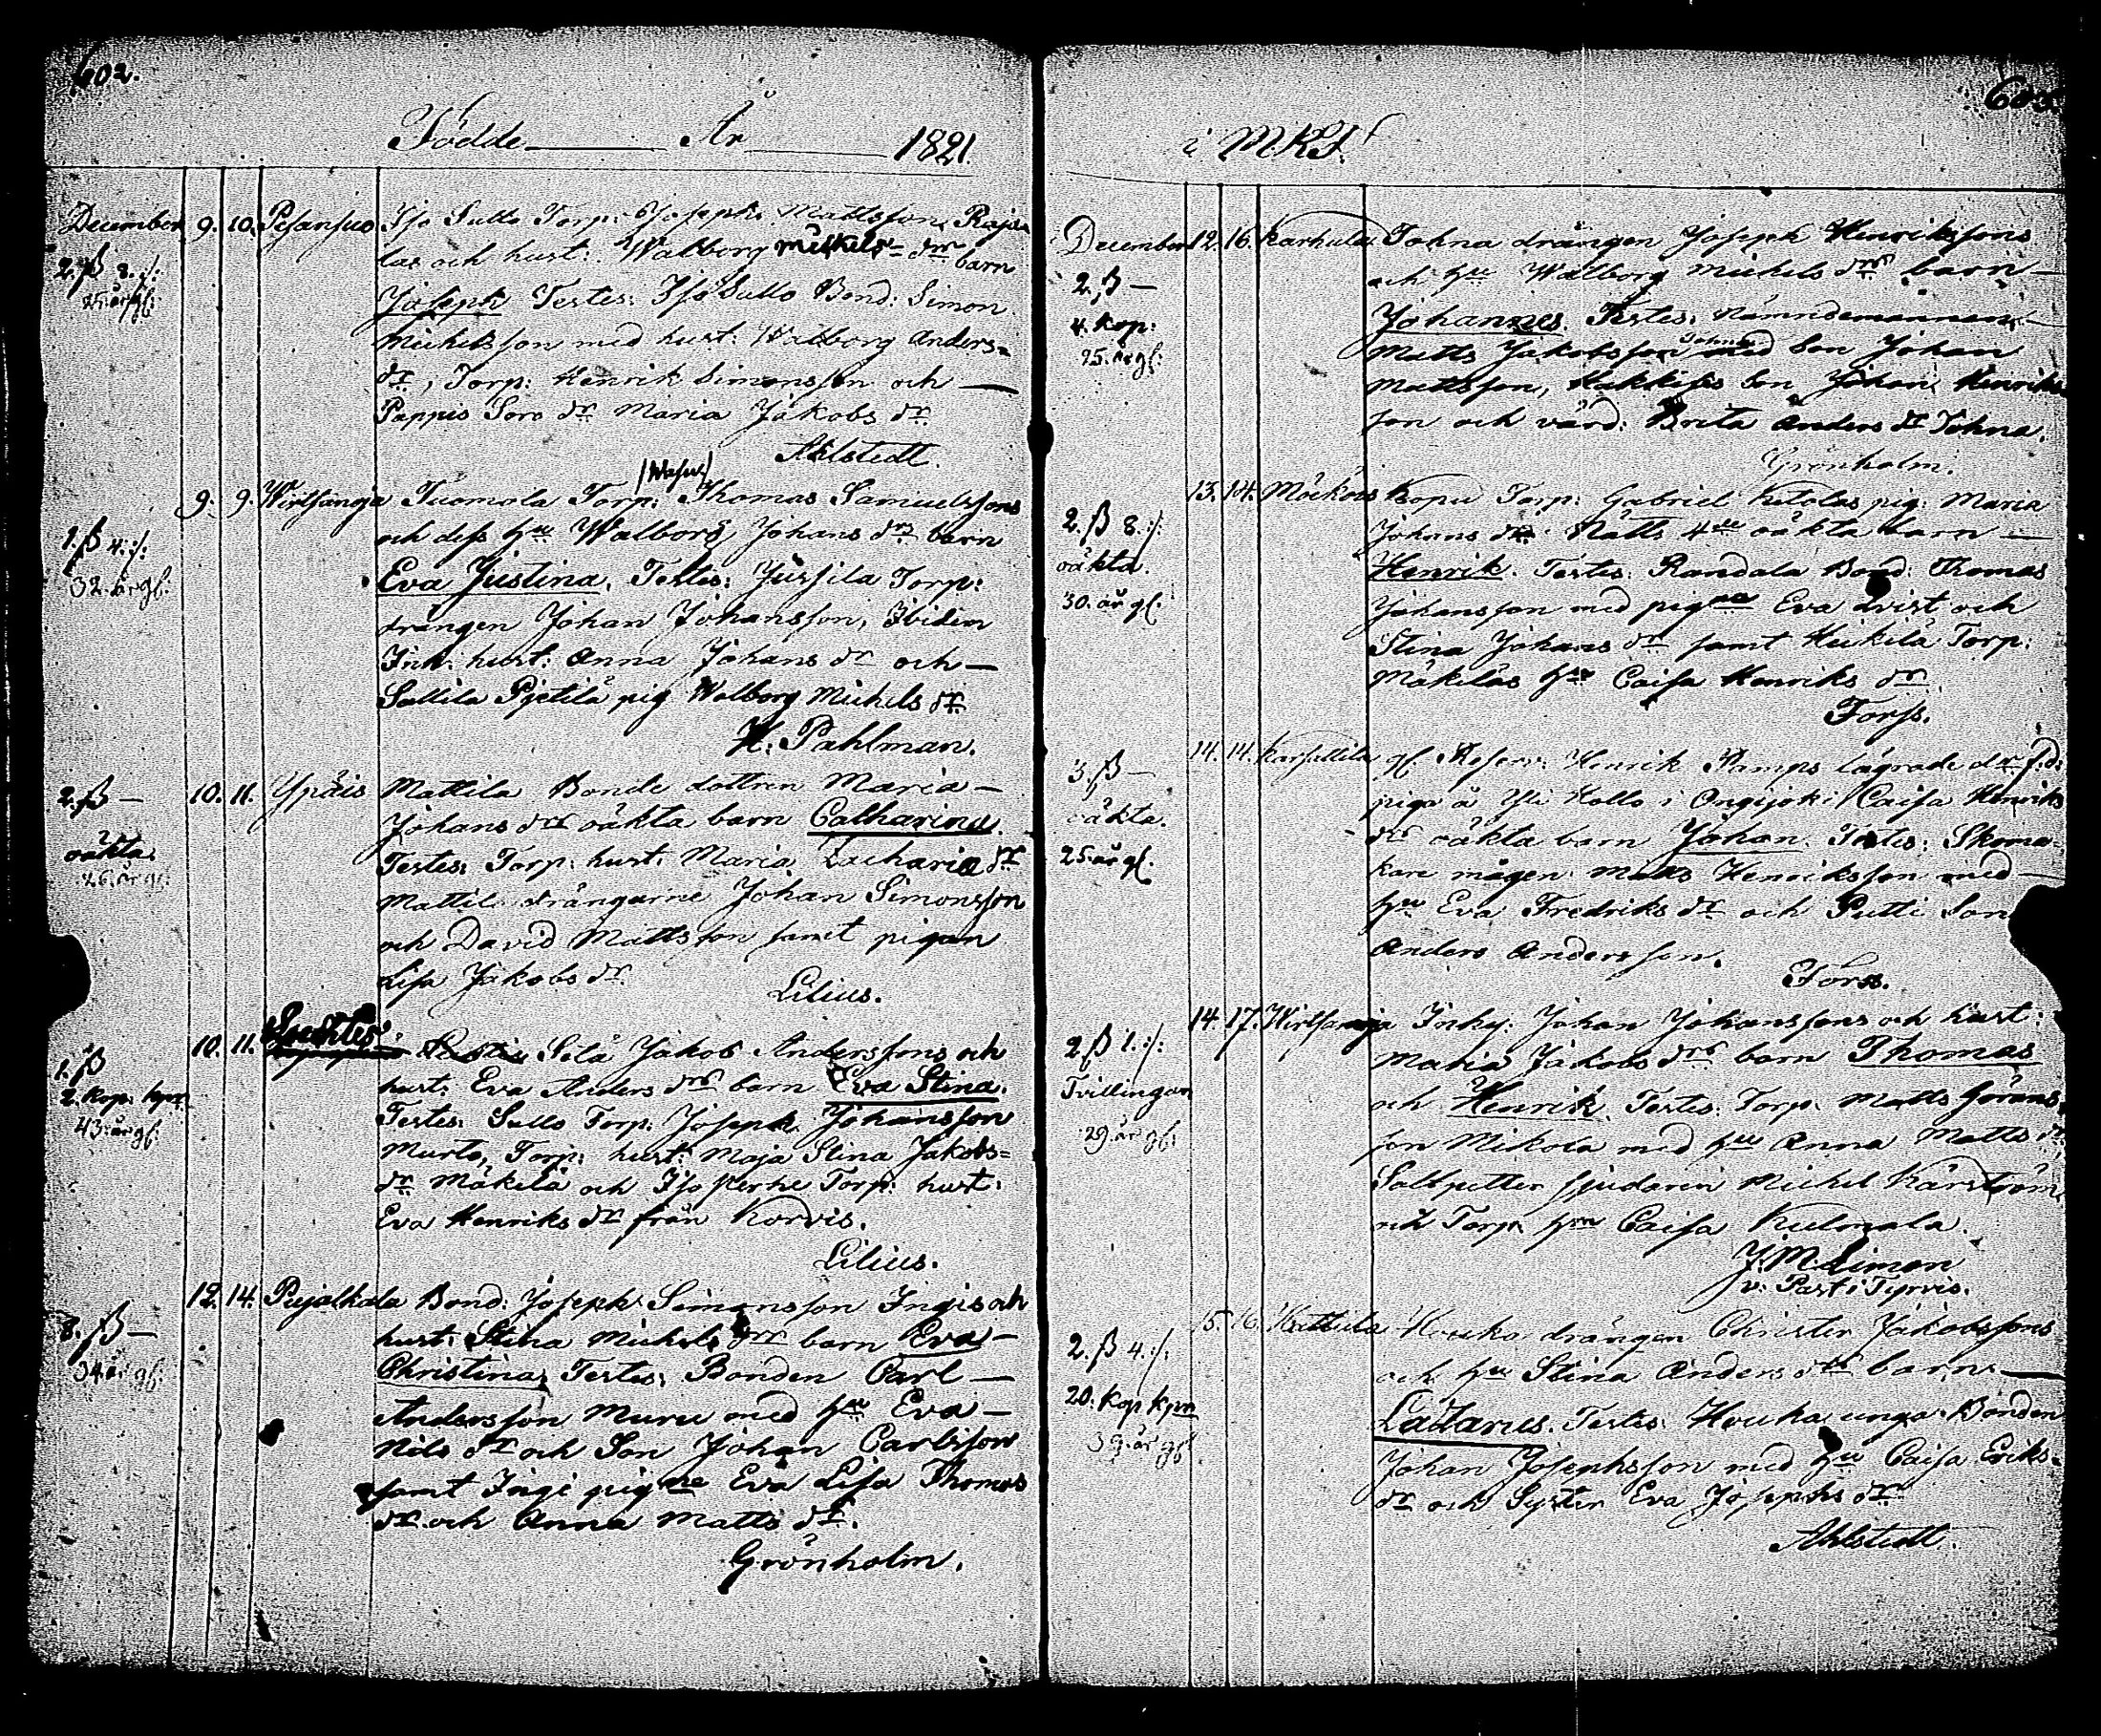 602.
Födde År 1821.
December 9. 10. Pesansuo Iso Sullo Torp: Josephs Mattsson Raja-
las och hust: Walborg Mickels drs barn
2. ß 8. :/:
25. år gl:
Joseph Testes: Iso Sullo Bond: Simon
Michelsson med hust: Walborg Anders-
dr, Torp: Henrik Simonsson och —
Pappis Soro dr Maria Jakobs dr
Ahlstedt.
(Wasu)
9. 9. Wirtsanoja Tuomola Torp: Thomas Samuelssons
1. ß 4. :/:
32. år gl:
och dess hu Walborg Johans drs barn
Eva Justina. Testes: Jussila Torp:
drängen Johan Johansson, Ibidem
Inh: hust: Anna Johans dr och —
Sallila Pjetilä pig Walborg Michels dr
H. Pahlman.
2. ß — 10. 11. Ypäis Mattila Bonde dottren Maria —
Johans drs oäkta barn Catharina.
oäkta.
26. år gl:
Testes: Torp: hust: Maria Zacharia dr
Mattil drängarne Johan Simonsson
och David Mattsson samt pigan
Lisa Jakobs dr.
Lilius.
10. 11. Sjelä Jakob Anderssons och
1. ß
2. kop: kpr
43. år gl:
hust: Eva Anders drs barn Eva Stina.
Testes: Sullo Torp: Joseph Johansson
Murto, Torp: hust: Maja Stina Jakobs-
dr Mäkelä och Iso Torp: hust:
Eva Henriks dr från Korvis.
Lilius.
12. 14. Pujalkala Bond: Joseph Simonsson Ingis och
8. ß —
34. år gl:
hust: Stina Michels drs barn Eva —
Christina, Testes: Bonden Carl —
Andersson Muru med hu Eva —
Nils dr och Son Johan Carlsson
samt Ingi pigne Eva Lisa Thomas
dr och Anna Matts dr.
Grönholm.
603.
i MKSf
December 12. 16. Karhula Johna drängen Joseph Henrikssons
och hu Walborg Michels drs barn —
2. ß —
4. kop:
25. år gl:
Johannes. Testes: Nämndemannen —
Matts Jakobsson Johna med Son Johan
Mattsson, Kakkises Son Johan Henriks
son och värd: Brita Anders dr Johna.
Grönholm.
13. 14. Mockois Kopu Torp: Gabriel Ketolas pig: Maria
2. ß 8. :/:
oäkta.
30. år gl:
Johans drs Nätts 4de oäkta barn —
Henrik. Testes: Randala Bond: Thomas
Johansson med pigne Eva Qvist och
Stina Johans dr samt Heikilä Torp:
Mäkiläs hu Caisa Henriks dr
Forss.
14. 14. Karsattila gl. Reserv: Henrik Stamps lägrade dr f.d:
3. ß —
oäkta.
25. år gl.
piga å Yli Kollo i Ongijoki Caisa Henriks
drs oäkta barn Johan. Testes: Skoma-
kare mågen Matts Henriksson med —
hu Eva Fredriks dr och Putti Son
Anders Andersson.
Forss.
14. 17. Wirtsanoja Inhy: Johan Johanssons och hust:
2. ß 1. :/:
Tvillingar
29. år gl:
Maria Jakobs drs barn Thomas
och Henrik. Testes: Torp: Matts Görans-
son Mikola med hu Anna Matts dr,
Saltpetter sjudaren Michel Kärström
och Torp: hu Caisa Kulmala.
J. M. Limon
v: Past: i Tyrvis.
15. 16. Kettula Houko drängen Christer Jakobssons
2. ß 4. :/:
20. kop kpm
39. år gl
och hu Stina Anders drs barn —
Lazarus. Testes: Houka unga Bonden
Johan Josephsson med hu Caisa Eriks-
dr och Syster Eva Josephs dr
Ahlstedt.